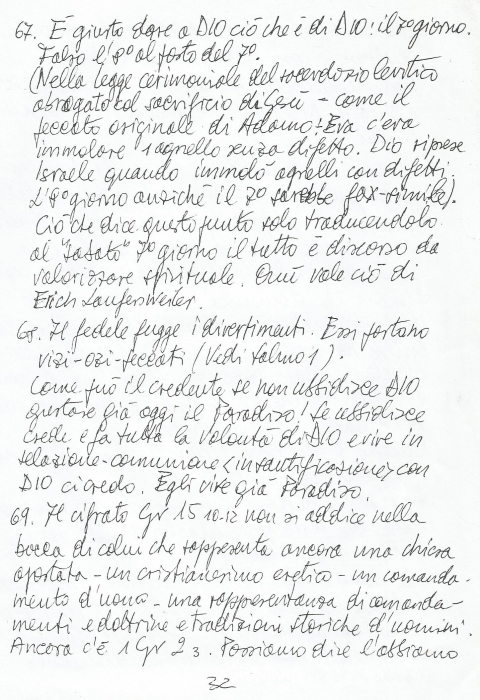 67. È giusto dare a DIO ciò che è di DIO: il 7º giorno.
Falso l'8º al posto del 7º.
(Nella legge cerimoniale del sacerdozio levitico
abrogato col sacrificio di Gesù - come il
peccato originale di Adamo! Eva c'era
immolare 1 agnello senza difetto. Dio riprese
Israele quando immolò agnelli con difetti.
L'8º giorno anziché il 7º sarebbe fax-simile).
Ciò che dice questo punto solo traducendolo
al "sabato" 7º giorno il tutto è discorso da
valorizzare spirituale. Qui vale ciò di
Erich Laufersweiler.
68. Il fedele fugge i divertimenti. Essi portano
vizi-ozi-peccati (Vedi Salmo 1).
Come può il credente se non ubbidisce DIO
gustare già oggi il Paradiso! Se ubbidisce
crede e fa tutta la Volontà di DIO e vive in
relazione-comunione <identificazione> con
DIO ci credo. Egli vive già Paradiso.
69. Il cifrato Gv 15 10-12 non si addice nella
bocca di colui che rappresenta ancora una chiesa
apostata - un cristianesimo eretico - un comanda-
mento d'uomo - una rappresentanza di comanda-
menti e dottrine e tradizioni storiche d'uomini.
Ancora c'è 1 Gv 2 3. Possiamo dire l'abbiamo
32